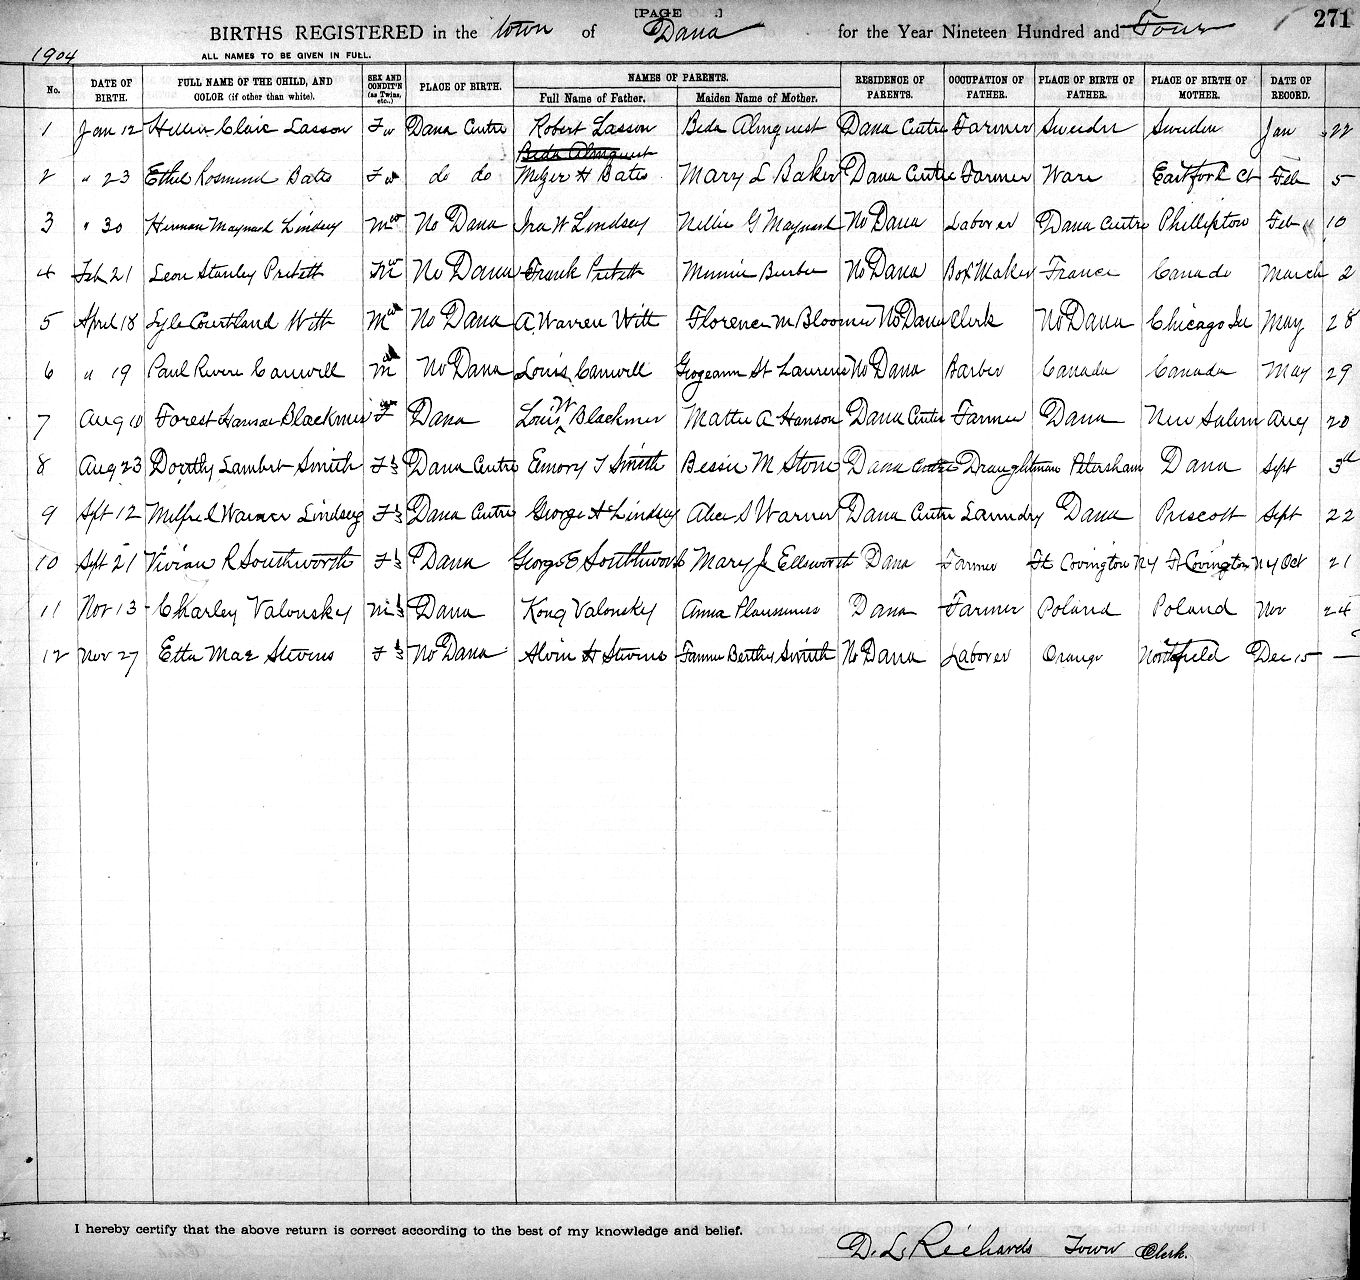 [PAGE ]
271
BIRTHS REGISTERED in the town of Dana for the Year Nineteen Hundred and Four
1904
ALL NAMES TO BE GIVEN IN FULL.
No. DATE OF BIRTH. FULL NAME OF THE CHILD, AND COLOR (if other than white). SEX AND CONDIT'N (as Twins, etc.,) PLACE OF BIRTH. NAMES OF PARENTS. Full Name of Father. Maiden Name of Mother. RESIDENCE OF PARENTS. OCCUPATION OF FATHER. PLACE OF BIRTH OF FATHER. PLACE OF BIRTH OF MOTHER. DATE OF RECORD.
1 Jan 12 Claic Lasson F w Dana Centre Robert Lasson Beda Almquest Dana Centre Farmer Sweden Sweden Jan 22
Beda Almquest
2 " 23 Ethel Rosmund Bates F w do do H Bates Mary L Baker Dana Centre Farmer Ware Eastford Ct Feb 5
3 " 30 Herman Maynard Lindsey M w No Dana Ira W Lindsey Nellie G Maynard No Dana Laborer Dana Centre Phillipston Feb 10
4 Feb 21 Leon Stanley w No Dana Frank Minnie No Dana Box Maker France Canada March 2
5 April 18 Lyle Courtland Witt M w No Dana A Warren Witt Florence M Bloomer No Dana Clerk No Dana Chicago Ill May 28
6 " 19 Paul Revere M No Dana Louis St Laurens No Dana Barber Canada Canada May 29
7 Aug 10 Forest Blackmer F Dana Louis W Blackmer Mattie A Hanson Dana Centre Farmer Dana New Salem Aug 20
8 Aug 23 Dorothy Lambert Smith F Dana Centre Emory T Smith Bessie M Stone Dana Centre Draughtsman Petersham Dana Sept 3d
9 Spt 12 Warner Lindsey F Dana Centre George A Lindsey Alice S Warner Dana Centre Laundry Dana Prescott Sept 22
10 Sept 21 Vivian R Southworth F Dana George E Southworth Mary J Ellsworth Dana Farmer Ft Covington NY Ft Covington NY Oct 21
11 Nov 13 Charley Valonsky M Dana Valonsky Anna Dana Farmer Poland Poland Nov 24
12 Nov 27 Etta Mae Stevens F No Dana Alvin H Stevens Fannie Bertha Smith No Dana Laborer Orange Northfield Dec 15 —
I hereby certify that the above return is correct according to the best of my knowledge and belief.
D. L. Richards Town Clerk.